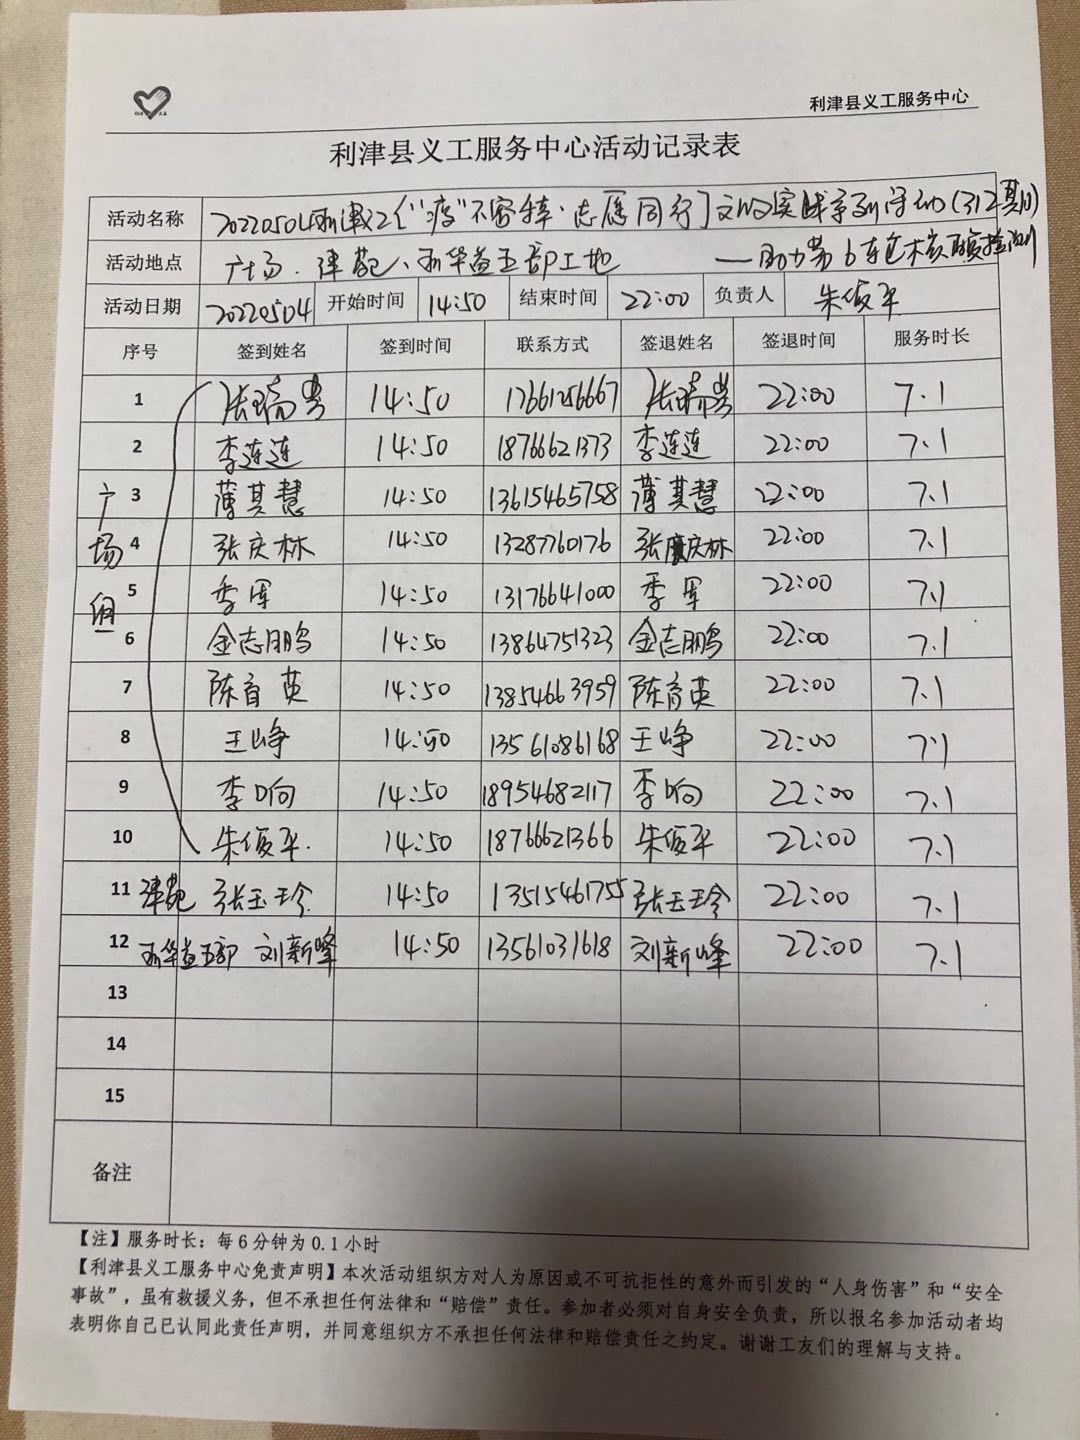 利津县义工服务中心
利津县义工服务中心活动记录表
活动名称 20220504利津义工《"疫"不容辞·志愿同行》文明实践系列活动(312期)
活动地点 广场、津苑、利华益五部工地 ——助力第6轮核酸检测
活动日期 20220504 开始时间 14:50 结束时间 22:00 负责人 朱俊平
序号 签到姓名 签到时间 联系方式 签退姓名 签退时间 服务时长
广场组
1 张瑞 14:50 17661256667 张瑞 22:00 7.1
2 李连连 14:50 18766621373 李连连 22:00 7.1
3 薄其慧 14:50 13615465758 薄其慧 22:00 7.1
4 张庆林 14:50 13287760176 张庆林 22:00 7.1
5 季军 14:50 13176641000 季军 22:00 7.1
6 金志鹏 14:50 13864751323 金志鹏 22:00 7.1
7 陈育英 14:50 13854663959 陈育英 22:00 7.1
8 王峥 14:50 13561086168 王峥 22:00 7.1
9 李响 14:50 18954682117 李响 22:00 7.1
10 朱俊平 14:50 18766621366 朱俊平 22:00 7.1
11 津苑 张玉珍 14:50 13515461755 张玉玲 22:00 7.1
12 利华益五部 刘新峰 14:50 13561031618 刘新峰 22:00 7.1
13
14
15
备注
【注】服务时长：每6分钟为0.1小时
【利津县义工服务中心免责声明】本次活动组织方对人为原因或不可抗拒性的意外而引发的“人身伤害”和“安全
事故”，虽有救援义务，但不承担任何法律和“赔偿”责任。参加者必须对自身安全负责，所以报名参加活动者均
表明你自己已认同此责任声明，并同意组织方不承担任何法律和赔偿责任之约定。谢谢工友们的理解与支持。